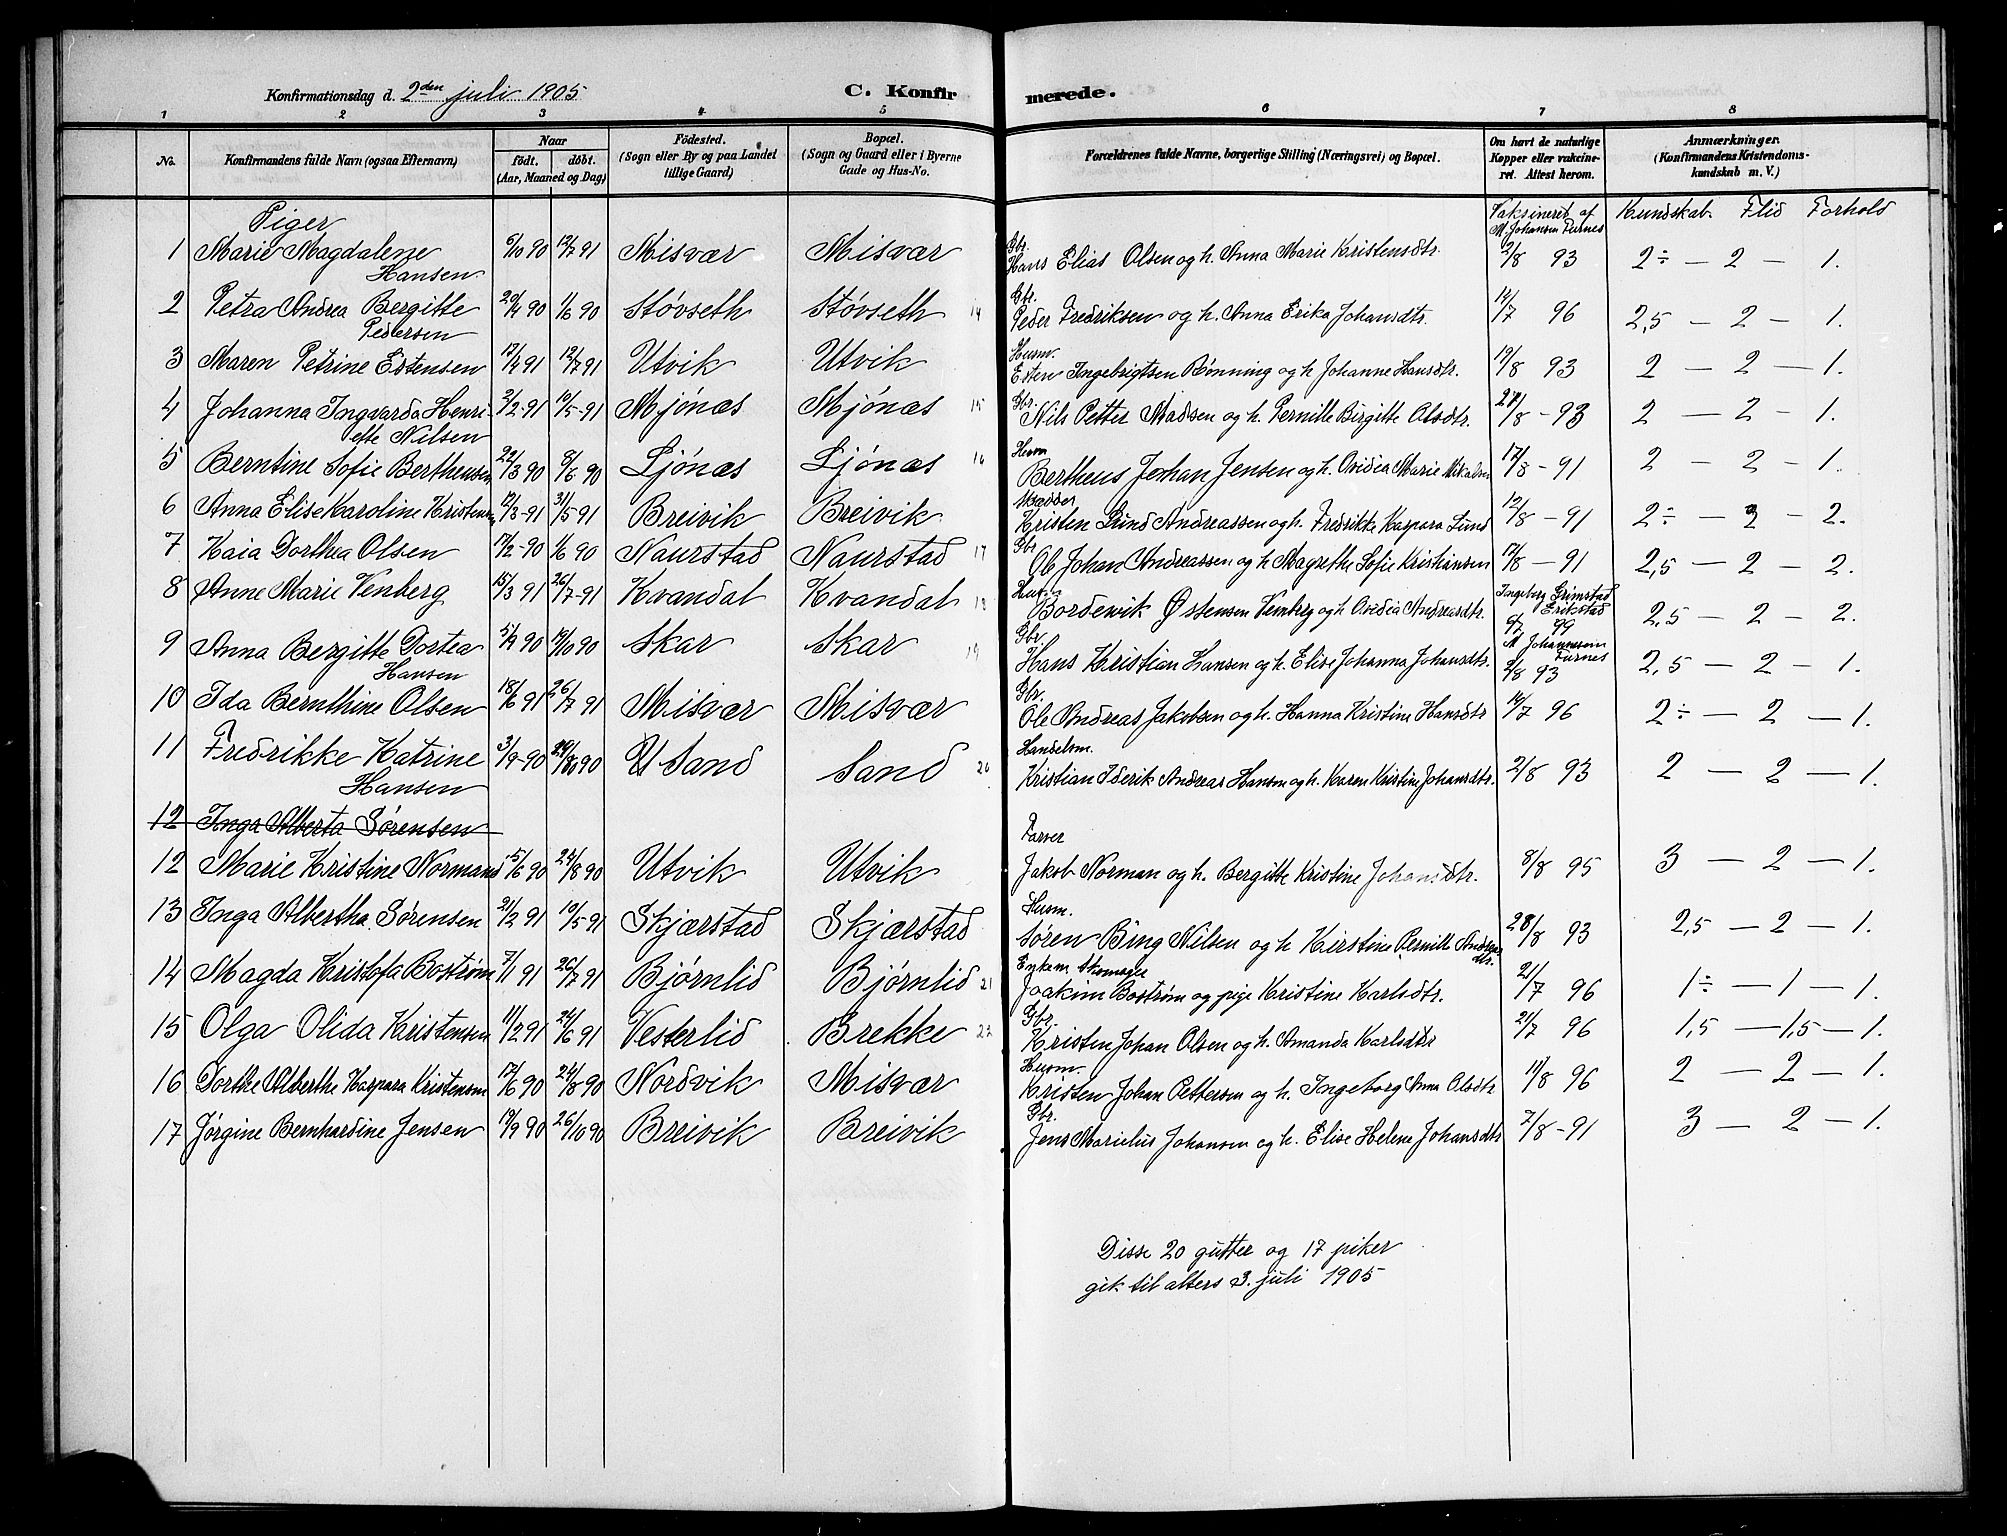 Konfirmationsdag d. 2den juli 1905 C. Konfirmerede.
1 2 3 4 5 6 7 8
No. Konfirmandens fulde Navn (ogsaa Efternavn) Naar født. døbt. (Aar, Maaned og Dag) Fødested. (Sogn eller By og paa Landet tillige Gaard) Bopæl. (Sogn og Gaard eller i Byerne Gade og Hus-No. Forældrenes fulde Navne, borgerlige Stilling (Næringsvei) og Bopæl. Om havt de naturlige Kopper eller vakcineret. Attest herom. Anmærkninger. (Konfirmandens Kristendomskundskab m. V.)
Piger Vaksineret af M. Johansen Furnes Kundskab Flid Forhold
1 Marie Magdalene Hansen 12/7 91 Misvær Misvær Gbr. Hans Elias Olsen og h. Anna Marie Kristensdtr. 2/8 93 2÷ — 2 — 1.
2 Petra Andrea Bergitte Pedersen 20/4 90 1/6 90 Støvseth Støvseth 14 Gbr. Peder Fredriksen og h. Anna Erika Johansdtr. 14/7 96 2,5 — 2 — 1.
3 Maren Petrine Estensen 17/4 91 12/7 91 Utvik Utvik Husm. Esten Ingebrigtsen Rønning og h Johanne Hansdtr. 19/8 93 2 — 2 — 1.
4 Johanna Ingvarda Henriette Nilsen 3/2-91 10/5-91 Mjønæs Mjønæs 15 Gbr. Nils Petter Madsen og h. Pernille Birgitte Olsdtr. 28/8-93 2 — 2 — 1.
5 Berntine Sofie Bertheusen 22/3 90 8/6 90 Ljønæs Ljønæs 16 Husm Bertheus Johan Jensen og h. Ovidea Marie 17/8-91 2 — 2 — 1.
6 Anna Elise Karoline Kristensen 12/3-91 31/5-91 Breivik Breivik Skrædder Kristen Lund Andreassen og h. Fredrikke Kaspara Lund 12/8-91 2÷ — 2 — 2.
7 Kaia Dorthea Olsen 17/2-90 1/6 90 Naurstad Naurstad 17 Gbr. Ole Johan Andreassen og h Magrethe Sofie Kristiansen 12/8-91 2,5 — 2 — 2.
8 Anne Marie Venberg 15/3 91 26/7-91 Kvandal Kvandal 18 Bordevik Østensen Venberg og h. Ovidia Andreasdtr. Ingeborg Grimstad Erikstad 99 2,5 — 2 — 2.
9 Anna Bergitte Dortea Hansen 5/9 90 19/10 90 Skar Skar 19 Gbr Hans Kristian Hansen og h. Elise Johanna Johansdtr. M Johannesen Furnes 2/8 93 2,5 — 2 — 1.
10 Ida Bernthine Olsen 18/6 91 26/7 91 Misvær Misvær Gbr. Ole Andreas Jakobsen og h. Hanna Kristine Hansdtr 16/7 96 2÷ — 2 — 1.
11 Fredrikke Katrine Hansen 3/9-90 Sand Sand 20 Handelsm. Kristian Iderik Andreas Hansen og h. Karen Kristine Johansdtr. 2/8 93 2 — 2 — 1.
12 Inga Alberta Sørensen
12 Marie Kristine Normand 15/6 90 24/8 90 Utvik Utvik Farver Jakob Norman og h. Bergitte Kristine Johansdtr. 8/8 95 3 — 2 — 1.
13 Inga Albertha Sørensen 21/2 91 10/5-91 Skjærstad Skjærstad Husm. Søren Bing Nilsen og h Kirstine Pernille Andreasdtr. 28/8 93 2,5 — 2 — 1.
14 Magda Kristofa Bostrøm 7/1 91 26/7 91 Bjørnlid Bjørnlid 21 Enkem Skomager Joakim Bostrøm og pige Kristine Karlsdtr. 21/7 96 1÷ — 1 — 1.
15 Olga Olida Kristensen 11/2 91 24/6 91 Vesterlid Brekke 22 Gbr. Kristen Johan Olsen og h. Amanda Karlsdtr 21/7 96 1,5 — 1,5 — 1.
16 Dorthe Alberthe Kaspara Kristensen 17/6 90 24/8 90 Nordvik Misvær Husm. Kristen Johan Pettersen og h. Ingeborg Anna Olsdtr 11/8 96 2 — 2 — 1.
17 Jørgine Bernhardine Jensen 19/9 90 26/10 90 Breivik Breivik Gbr. Jens Marielius Johansen og h. Elise Helene Johansdtr 7/8-91 3 — 2 — 1.
Disse 20 gutter og 17 piker
gik til alters 3. juli 1905